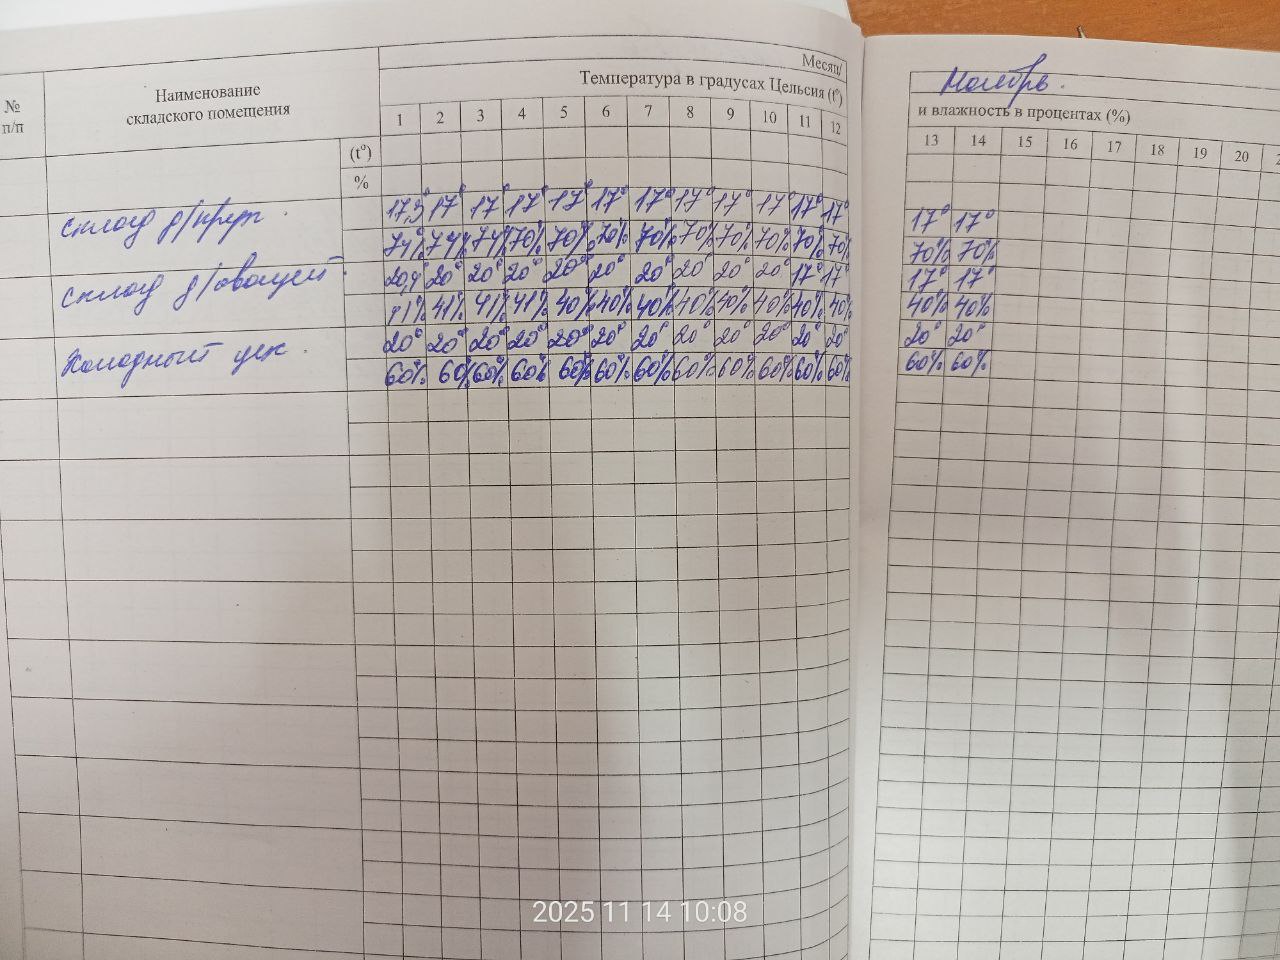 Месяц/ Ноябрь.
№ п/п
Наименование складского помещения
Температура в градусах Цельсия (t°) и влажность в процентах (%)
1 2 3 4 5 6 7 8 9 10 11 12 13 14 15 16 17 18 19 20
(t°)
%
склад д/круп.
17° 17 17° 17° 17° 17° 17° 17° 17° 17° 17° 17° 17°
74% 74% 74% 70% 70% 70% 70% 70% 70% 70% 70% 70% 70% 70%
склад д/овощей.
20,4° 20° 20° 20° 20° 20° 20° 20° 20° 20° 17° 17° 17° 17°
41% 41% 41% 40% 40% 40% 40% 40% 40% 40% 40% 40% 40%
Холодный цех.
20° 20° 20° 20° 20° 20° 20° 20° 20° 20° 20° 20° 20° 20°
60% 60% 60% 60% 60% 60% 60% 60% 60% 60% 60% 60% 60% 60%
2025 11 14 10:08